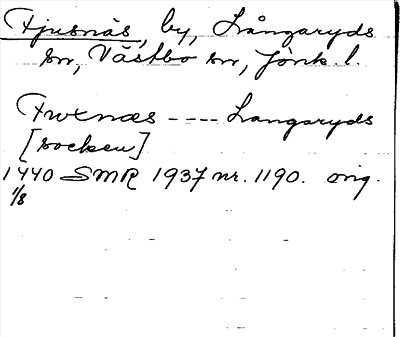 Tjusnäs, by, Långaryds
sn, Västbo sn, Jönk. l.
Twxnæs ---- Langaryds
[socken]
1440 SMR 1937 nr. 1190. orig.
1/8